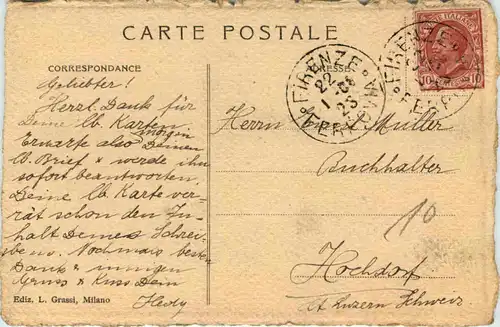 CARTE POSTALE
CORRESPONDANCE
Geliebter!
Herzl. Dank für
Deine lb. Karten
morgen
Erwarte also Deinen
lb. Brief & werde ihn
sofort beantworten.
Deine lb. Karte ver-
rät schon den In-
halt Deines Schrei-
bens. Nochmals besten
Dank & innigen
Gruss & Kuss Dein
Hedy
Ediz. L. Grassi, Milano
ADRESSE
FIRENZE
FERROVIA
22
1
23
FIRENZE
10 10
Herrn Müller
Buchhalter
10
Hochdorf
Kt. Luzern Schweiz